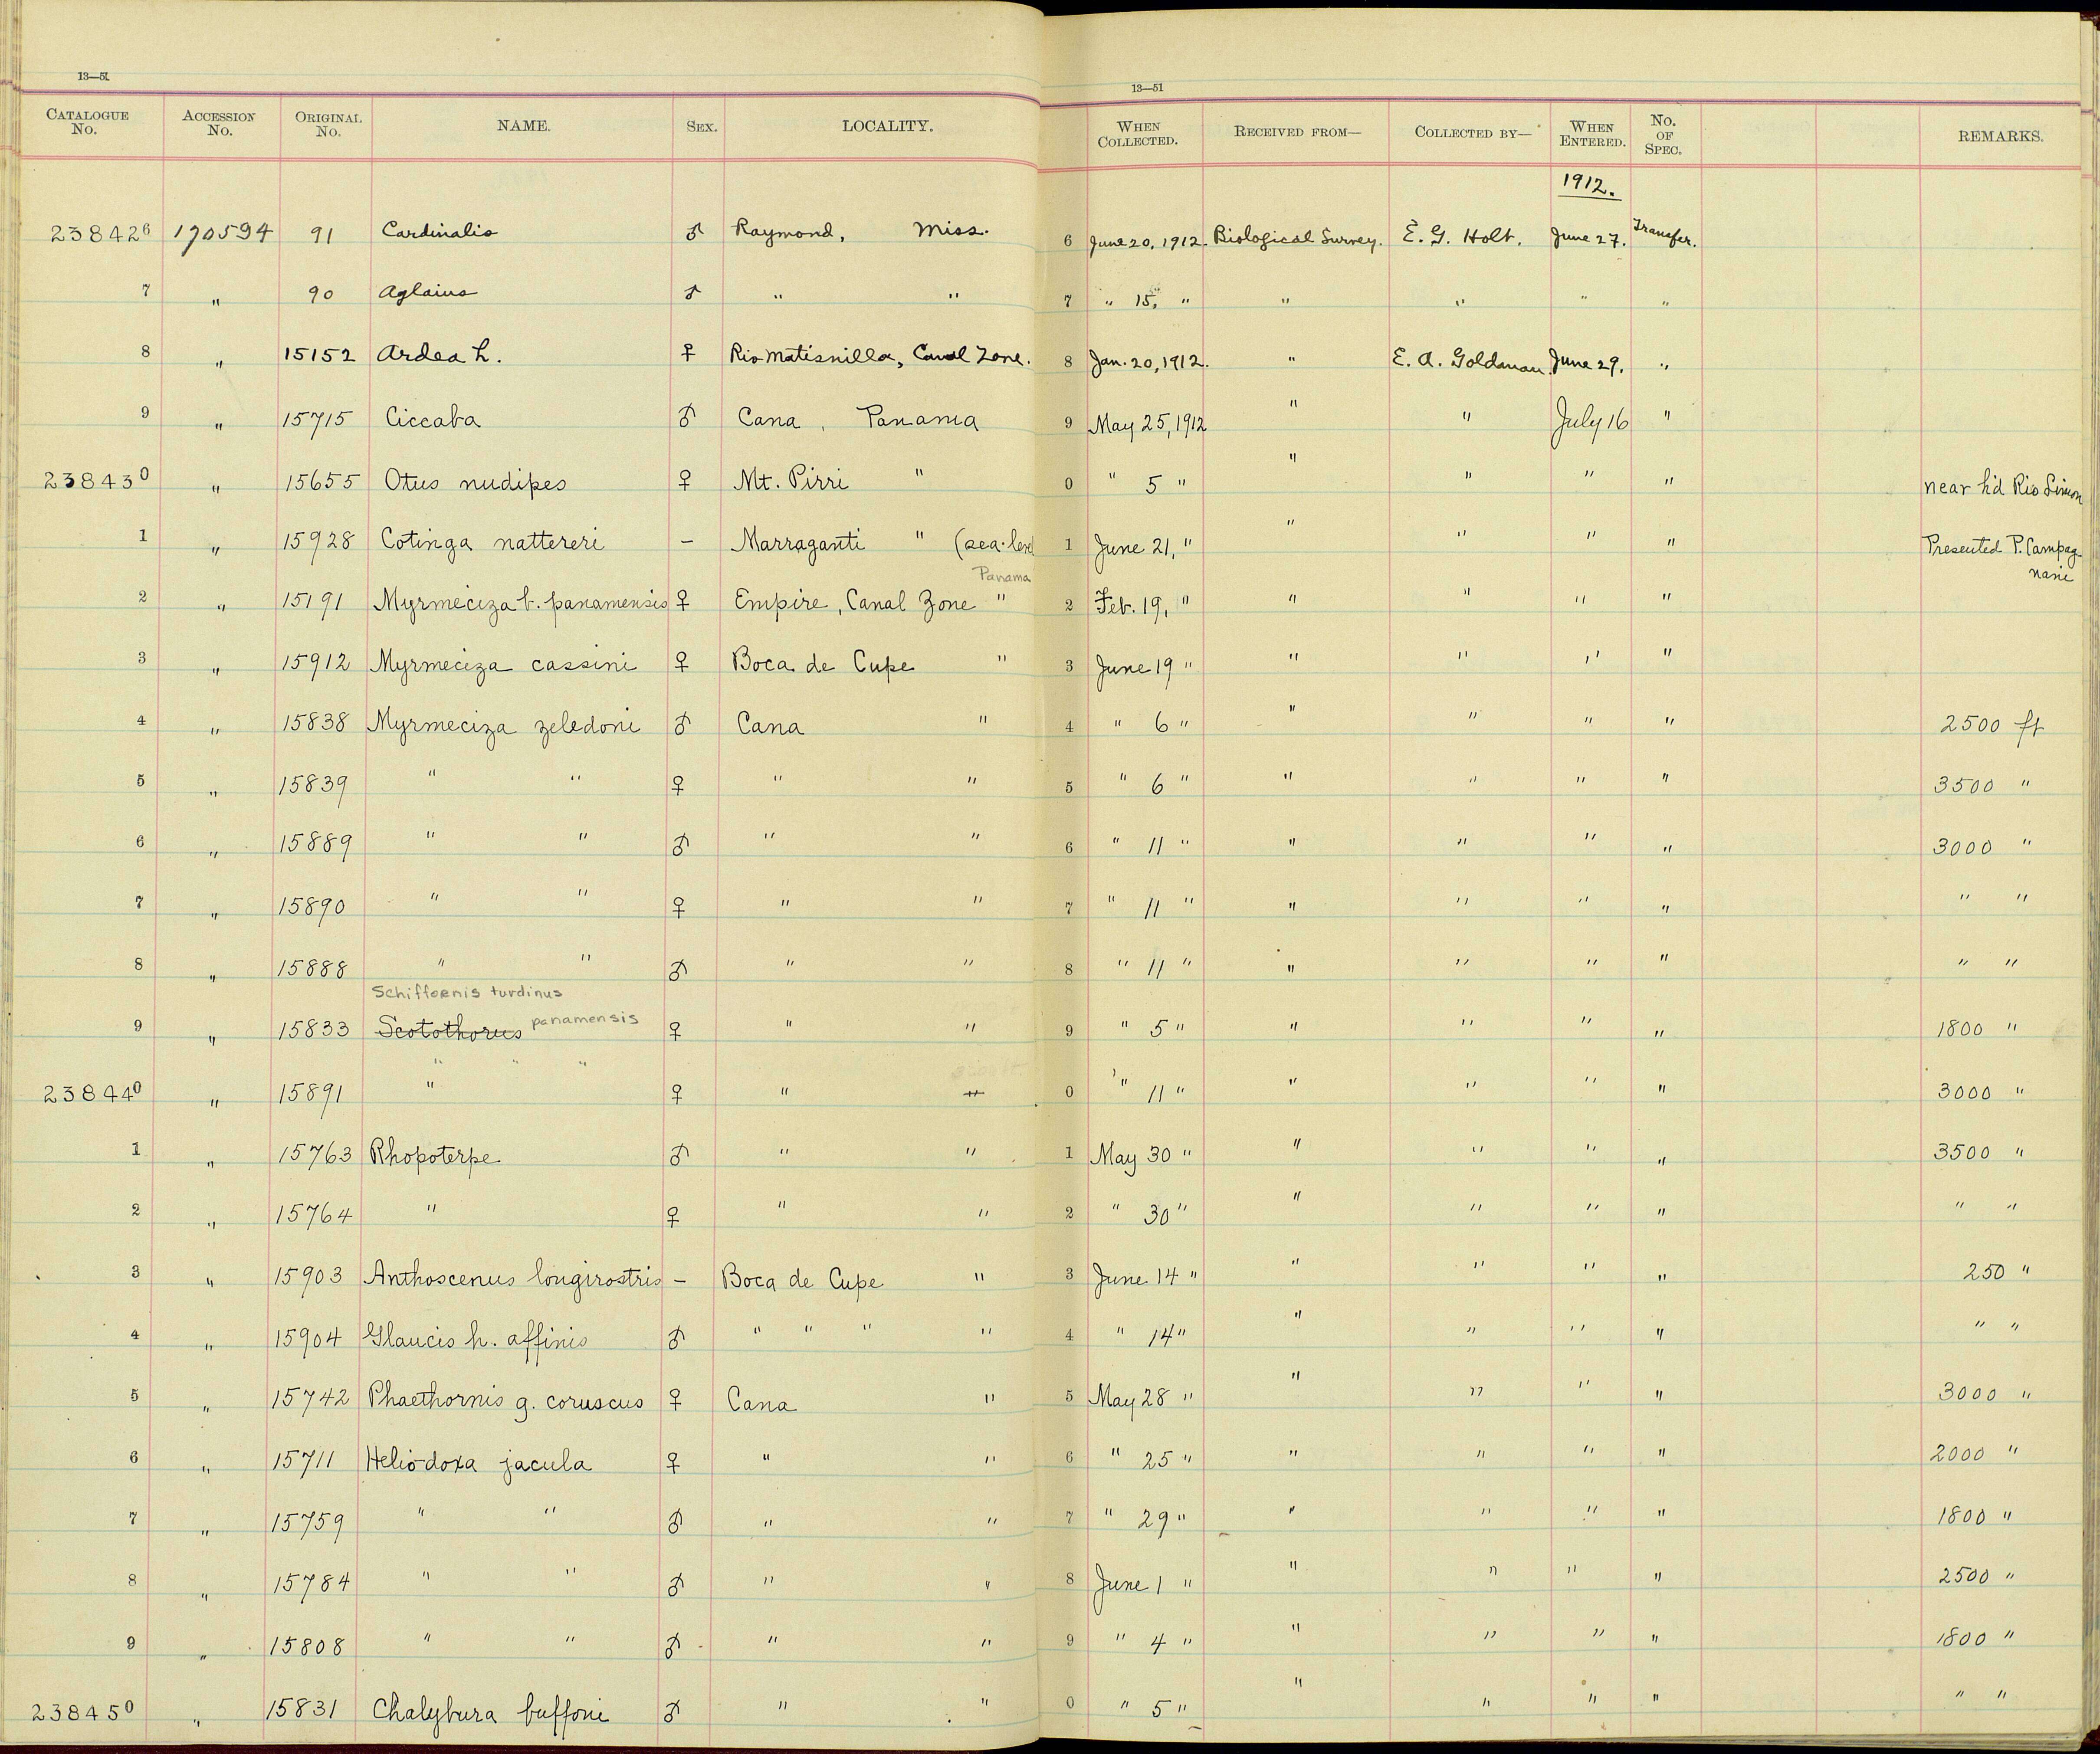 13—51
CATALOGUE No. ACCESSION No. ORIGINAL No. NAME. SEX. LOCALITY.
238426 170594 91 Cardinalis ♂ Raymond, Miss.
7 " 90 Aglaius ♂ " "
8 " 15152 Ardea h. ♀ Rio Matisnilla, Canal Zone.
9 " 15715 Ciccaba ♂ Cana, Panama
238430 " 15655 Otus nudipes ♀ Mt. Pirri "
1 " 15928 Cotinga nattereri – Marraganti " (sea-level
Panama
2 " 15191 Myrmeciza b. panamensis ♀ Empire, Canal Zone "
3 " 15912 Myrmeciza cassini ♀ Boca de Cupe "
4 " 15838 Myrmeciza zeledoni ♂ Cana "
5 " 15839 " " ♀ " "
6 " 15889 " " ♂ " "
7 " 15890 " " ♀ " "
8 " 15888 " " ♂ " "
Schiffornis turdinus
9 " 15833 Scotothorus panamensis ♀ " "
" " "
238440 " 15891 " ♀ " "
1 " 15763 Rhopoterpe ♂ " "
2 " 15764 " ♀ " "
3 " 15903 Anthoscenus longirostris – Boca de Cupe "
4 " 15904 Glaucis h. affinis ♂ " " " "
5 " 15742 Phaethornis g. coruscus ♀ Cana "
6 " 15711 Heliodoxa jacula ♀ " "
7 " 15759 " " ♂ " "
8 " 15784 " " ♂ " "
9 " 15808 " " ♂ " "
238450 " 15831 Chalybura buffoni ♂ " "
13—51
WHEN COLLECTED. RECEIVED FROM— COLLECTED BY— WHEN ENTERED. No. OF SPEC. REMARKS.
1912.
6 June 20, 1912. Biological Survey. E. G. Holt. June 27. Transfer.
7 " 15, " " " " "
8 Jan. 20, 1912. " E. A. Goldman. June 29. "
9 May 25, 1912 " " July 16 "
0 " 5 " " " " " near h'd Rio Limon
1 June 21, " " " " " Presented P. Campag
nani
2 Feb. 19, " " " " "
3 June 19 " " " " "
4 " 6 " " " " " 2500 ft
5 " 6 " " " " " 3500 "
6 " 11 " " " " " 3000 "
7 " 11 " " " " " " "
8 " 11 " " " " " " "
9 " 5 " " " " " 1800 "
0 " 11 " " " " " 3000 "
1 May 30 " " " " " 3500 "
2 " 30 " " " " " " "
3 June 14 " " " " " 250 "
4 " 14 " " " " " " "
5 May 28 " " " " " 3000 "
6 " 25 " " " " " 2000 "
7 " 29 " " " " " 1800 "
8 June 1 " " " " " 2500 "
9 " 4 " " " " " 1800 "
0 " 5 " " " " " " "